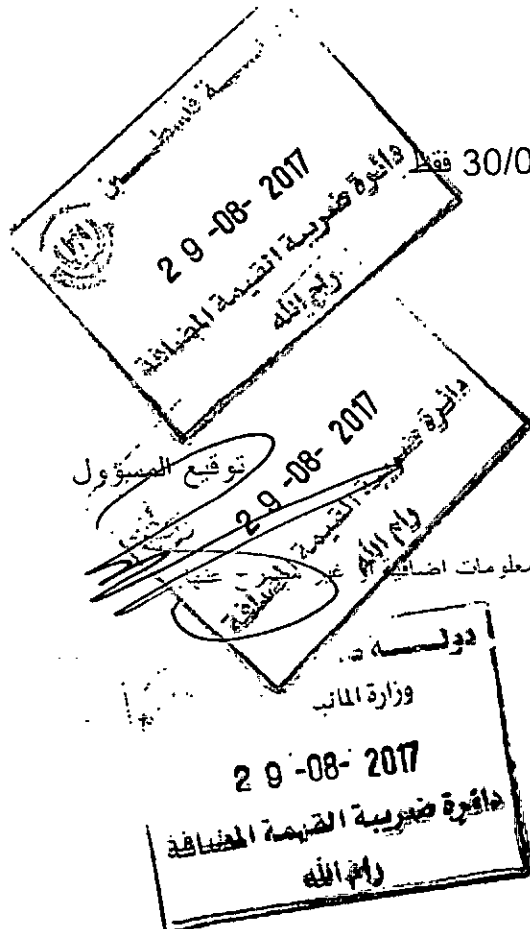 فلسطين
29-08-2017
دائرة ضريبة القيمة المضافة
رام الله
30/0 فقط
دائرة ضريبة القيمة المضافة
29-08-2017
رام الله
توقيع المسؤول
معلومات اضافية
دولـــة
وزارة
29-08-2017
دائرة ضريبة القيمة المضافة
رام الله